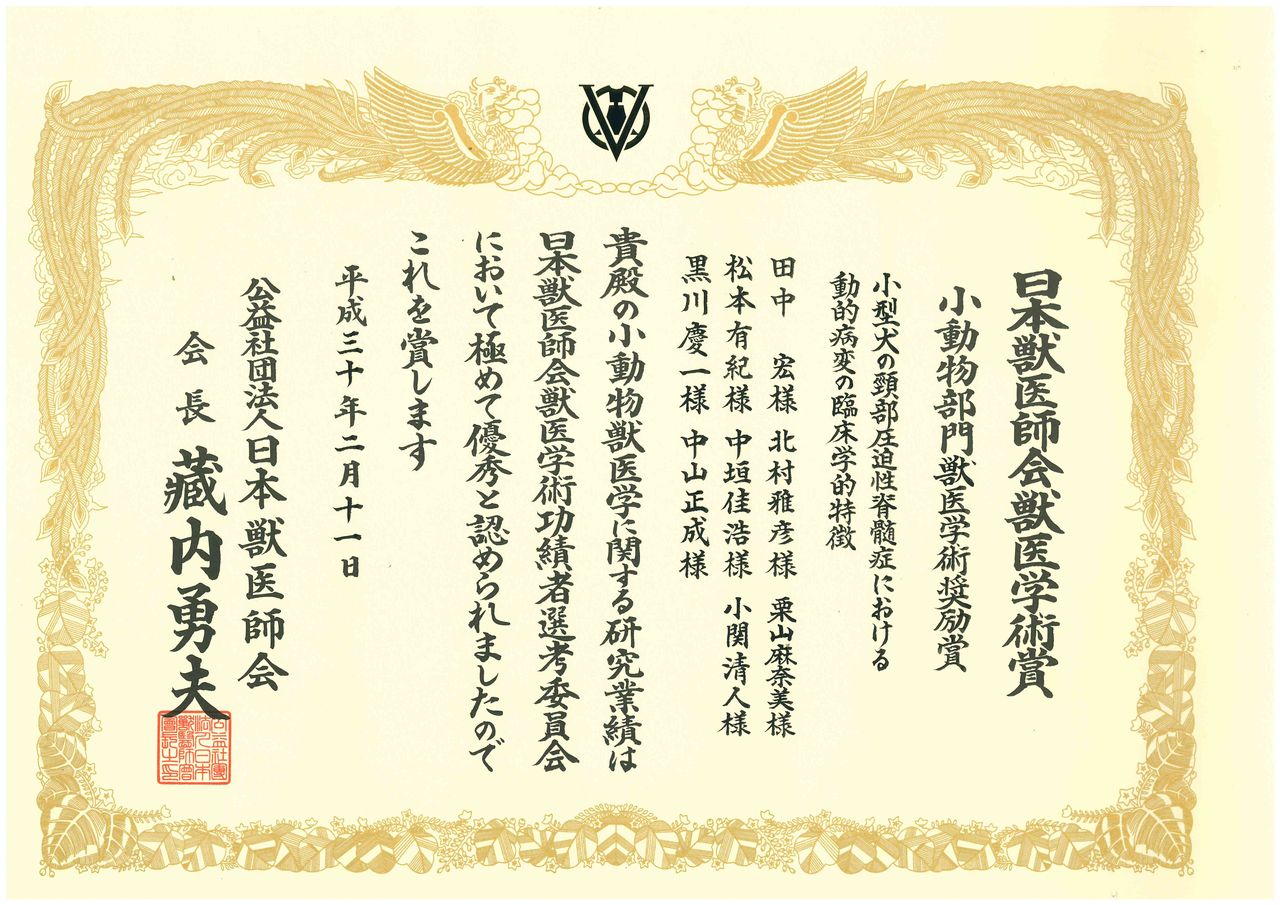 日本獣医師会獣医学術賞
小動物部門獣医学術奨励賞
小型犬の頸部圧迫性脊髄症における
動的病変の臨床学的特徴
田中 宏様 北村雅彦様 栗山麻奈美様
松本有紀様 中垣佳浩様 小関清人様
黒川慶一様 中山正成様
貴殿の小動物獣医学に関する研究業績は
日本獣医師会獣医学術功績者選考委員会
において極めて優秀と認められましたので
これを賞します
平成三十年二月十一日
公益社団法人日本獣医師会
会長 藏内勇夫
公益社團
法人日本
獸醫師會
會長之印